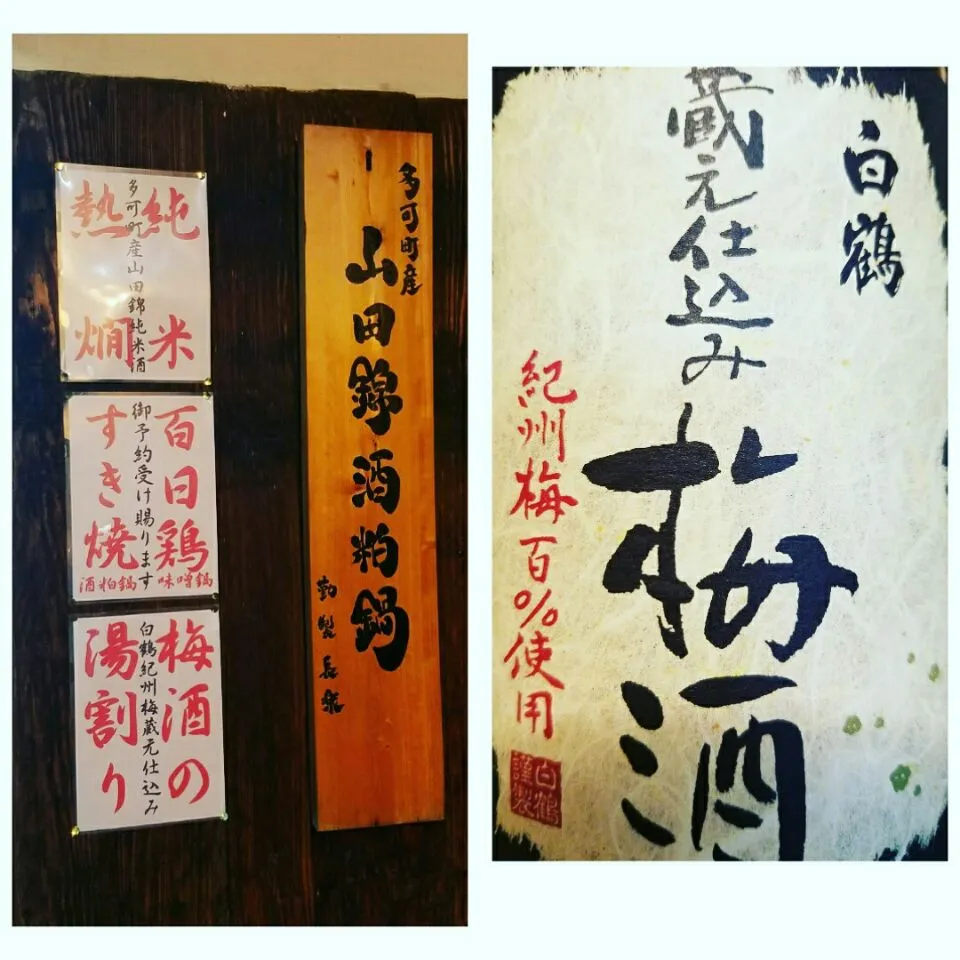 純米
多可町産山田錦純米酒
熱燗
百日鶏
御予約受け賜ります
すき焼
味噌鍋
酒粕鍋
梅酒の
白鶴紀州梅蔵元仕込み
湯割り
多可町産
山田錦酒粕鍋
謹製長楽
白鶴
蔵元仕込み
梅酒
紀州梅百%使用
白鶴
謹製